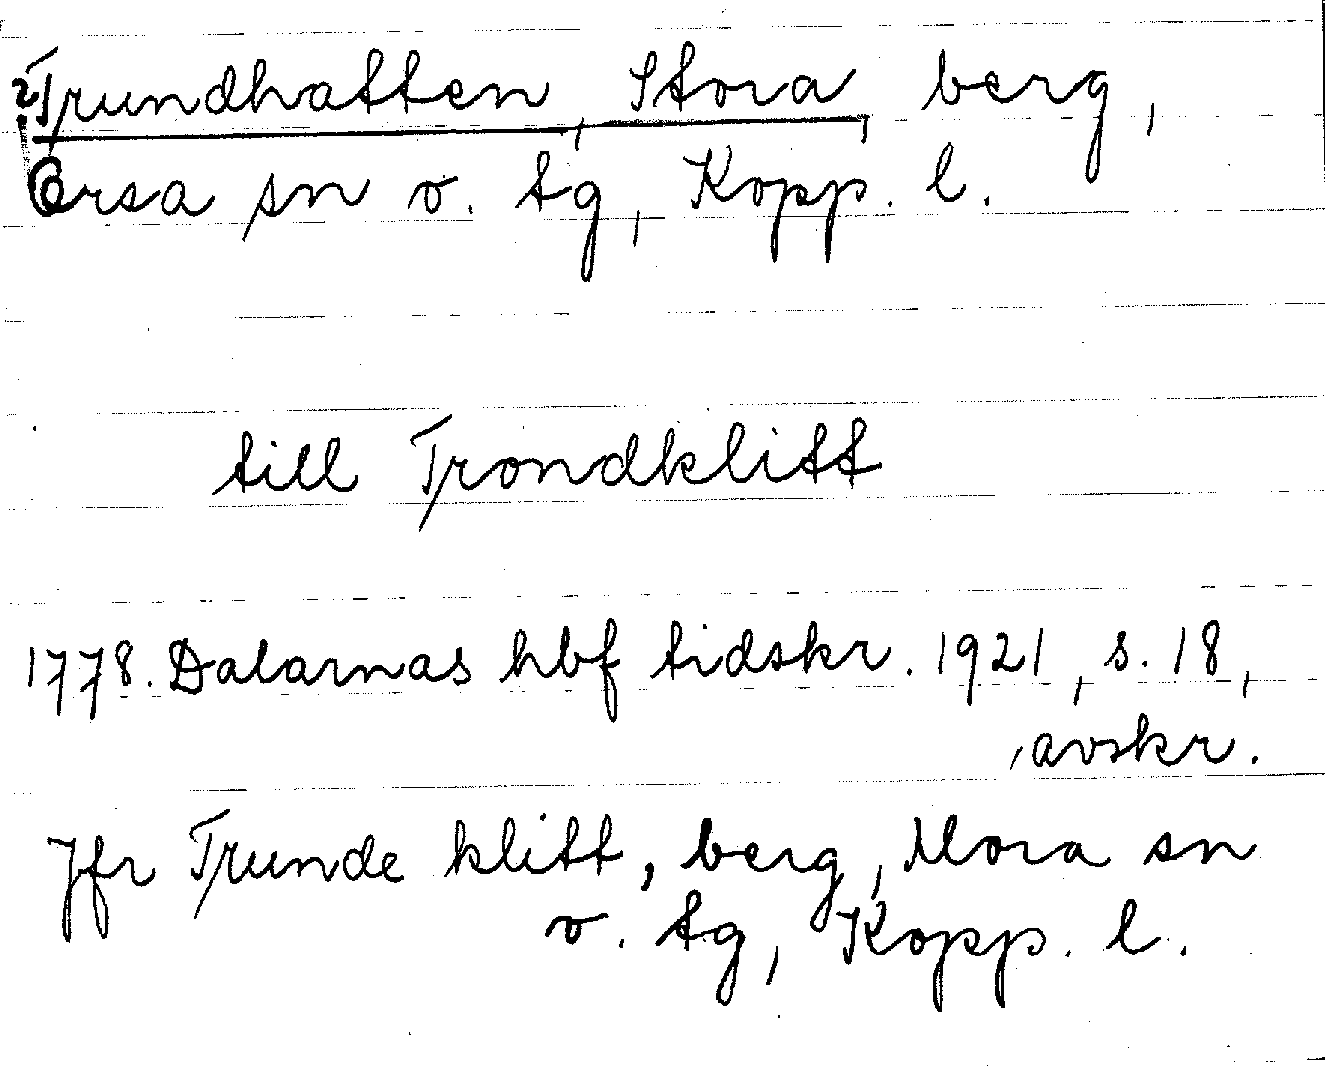 Trundhatten, Stora, berg,
Orsa sn o. tg, Kopp. l.
till Trondklitt
1778. Dalarnas hbf tidskr. 1921, s. 18,
avskr.
Jfr Trunde klitt, berg, Mora sn
o. tg, Kopp. l.